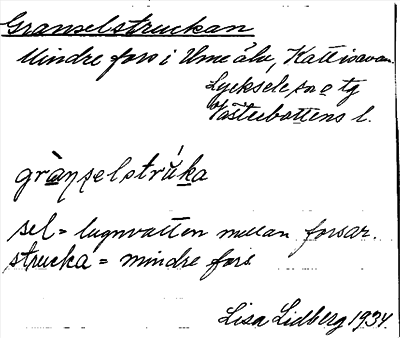 Granselstruckan
Mindre fors i Ume älv, Kattisavan
Lycksele sn o tg
Västerbottens l.
grànselstrúka
sel = lugnvatten mellan forsar.
strucka = mindre fors
Lisa Lidberg 1934.